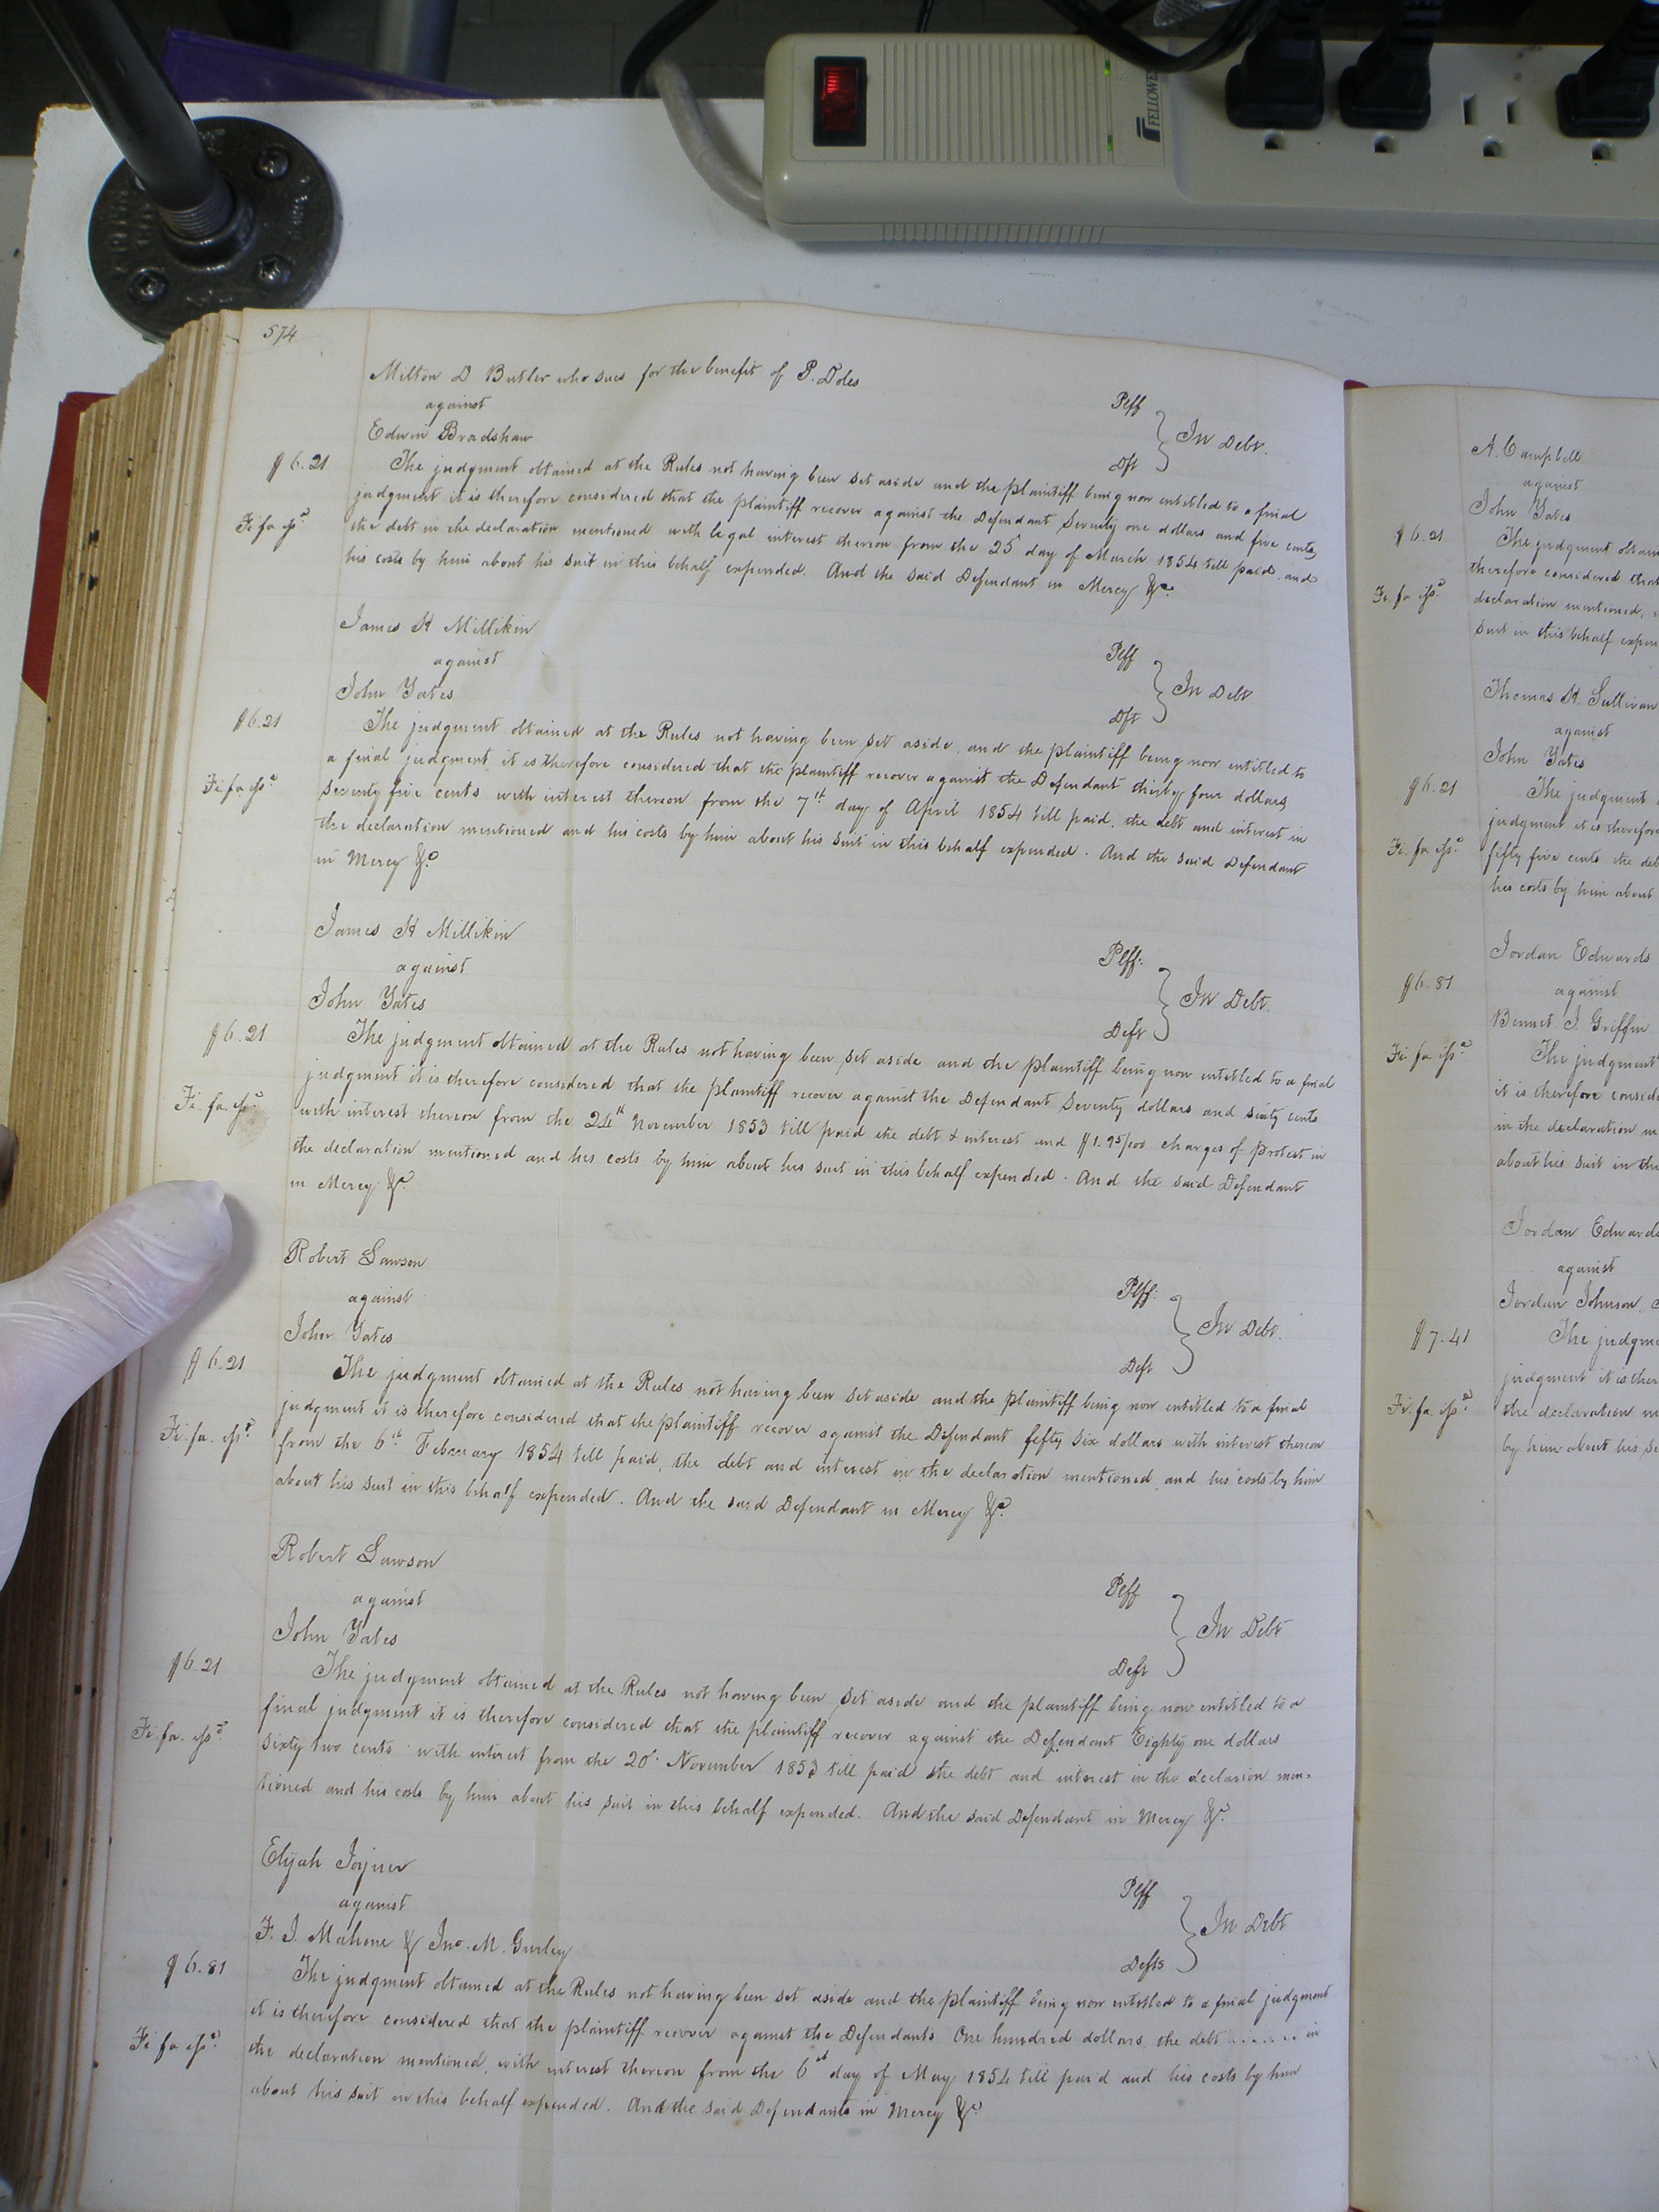 FELLOWES
574
Milton D Butler who sues for the benefit of P. Doles
against
Plff
Edwin Bradshaw
Dft
In Debt.
$6.21
The judgment obtained at the Rules not having been set aside and the plaintiff being now entitled to a final
judgment it is therefore considered that the plaintiff recover against the Defendant Seventy one dollars and five cents
Fi fa issd
the debt in the declaration mentioned with legal interest thereon from the 25 day of March 1854 till paid and
his costs by him about his suit in this behalf expended. And the said Defendant in Mercy &c.
James H Millikin
against
Plff
John Yates
Dft
In Debt
$6.21
The judgment obtained at the Rules not having been set aside and the plaintiff being now entitled to
a final judgment it is therefore considered that the plaintiff recover against the Defendant thirty four dollars
Fi fa issd
Seventy five cents with interest thereon from the 7th day of April 1854 till paid, the debt and interest in
the declaration mentioned and his costs by him about his suit in this behalf expended. And the said Defendant
in Mercy &c
James H Millikin
against
Plff.
John Yates
Deft
In Debt.
$6.21
The judgment obtained at the Rules not having been set aside and the plaintiff being now entitled to a final
judgment it is therefore considered that the plaintiff recover against the Defendant Seventy dollars and sixty cents
Fi. fa. issd
with interest thereon from the 24th November 1853 till paid the debt & interest and $1.95/100 charges of protest in
the declaration mentioned and his costs by him about his suit in this behalf expended. And the said Defendant
in Mercy &c
Robert Lawson
against
Plff.
John Yates
Deft
In Debt.
$6.21
The judgment obtained at the Rules not having been set aside and the plaintiff being now entitled to a final
judgment it is therefore considered that the plaintiff recover against the Defendant fifty six dollars with interest thereon
Fi. fa. issd
from the 6th February 1854 till paid, the debt and interest in the declaration mentioned and his costs by him
about his suit in this behalf expended. And the said Defendant in Mercy &c
Robert Lawson
against
Plff
John Yates
Deft
In Debt
$6.21
The judgment obtained at the Rules not having been set aside and the plaintiff being now entitled to a
final judgment it is therefore considered that the plaintiff recover against the Defendant Eighty one dollars
Fi. fa. issd
Sixty two cents with interest from the 20 November 1853 till paid the debt and interest in the declarion men-
tioned and his costs by him about his suit in this behalf expended. And the said Defendant in Mercy &c.
Elijah Joyner
against
Plff
F. J. Mahone & Jno. M. Gurley
Defts
In Debt
$6.81
The judgment obtained at the Rules not having been set aside and the plaintiff being now entitled to a final judgment
it is therefore considered that the plaintiff recover against the Defendants One hundred dollars, the debt ...... in
Fi fa issd
the declaration mentioned, with interest thereon from the 6th day of May 1854 till paid and his costs by him
about his suit in this behalf expended. And the said Defendants in Mercy &c
A. Campbell
against
John Yates
$6.21
The judgment obtain
therefore considered that
Fi. fa issd
declaration mentioned,
suit in this behalf expen
Thomas H. Sullivan
against
John Yates
$6.21
The judgment
judgment it is therefore
Fi. fa issd
fifty five cents the deb
his costs by him about
Jordan Edwards
$6.81
against
Bennet J. Griffin
Fi fa issd
The judgment
it is therefore conside
in the declaration m
about his suit in thi
Jordan Edwards
against
Jordan Johnson
$7.41
The judgme
judgment it is ther
Fi. fa. issd
the declaration m
by him about his su